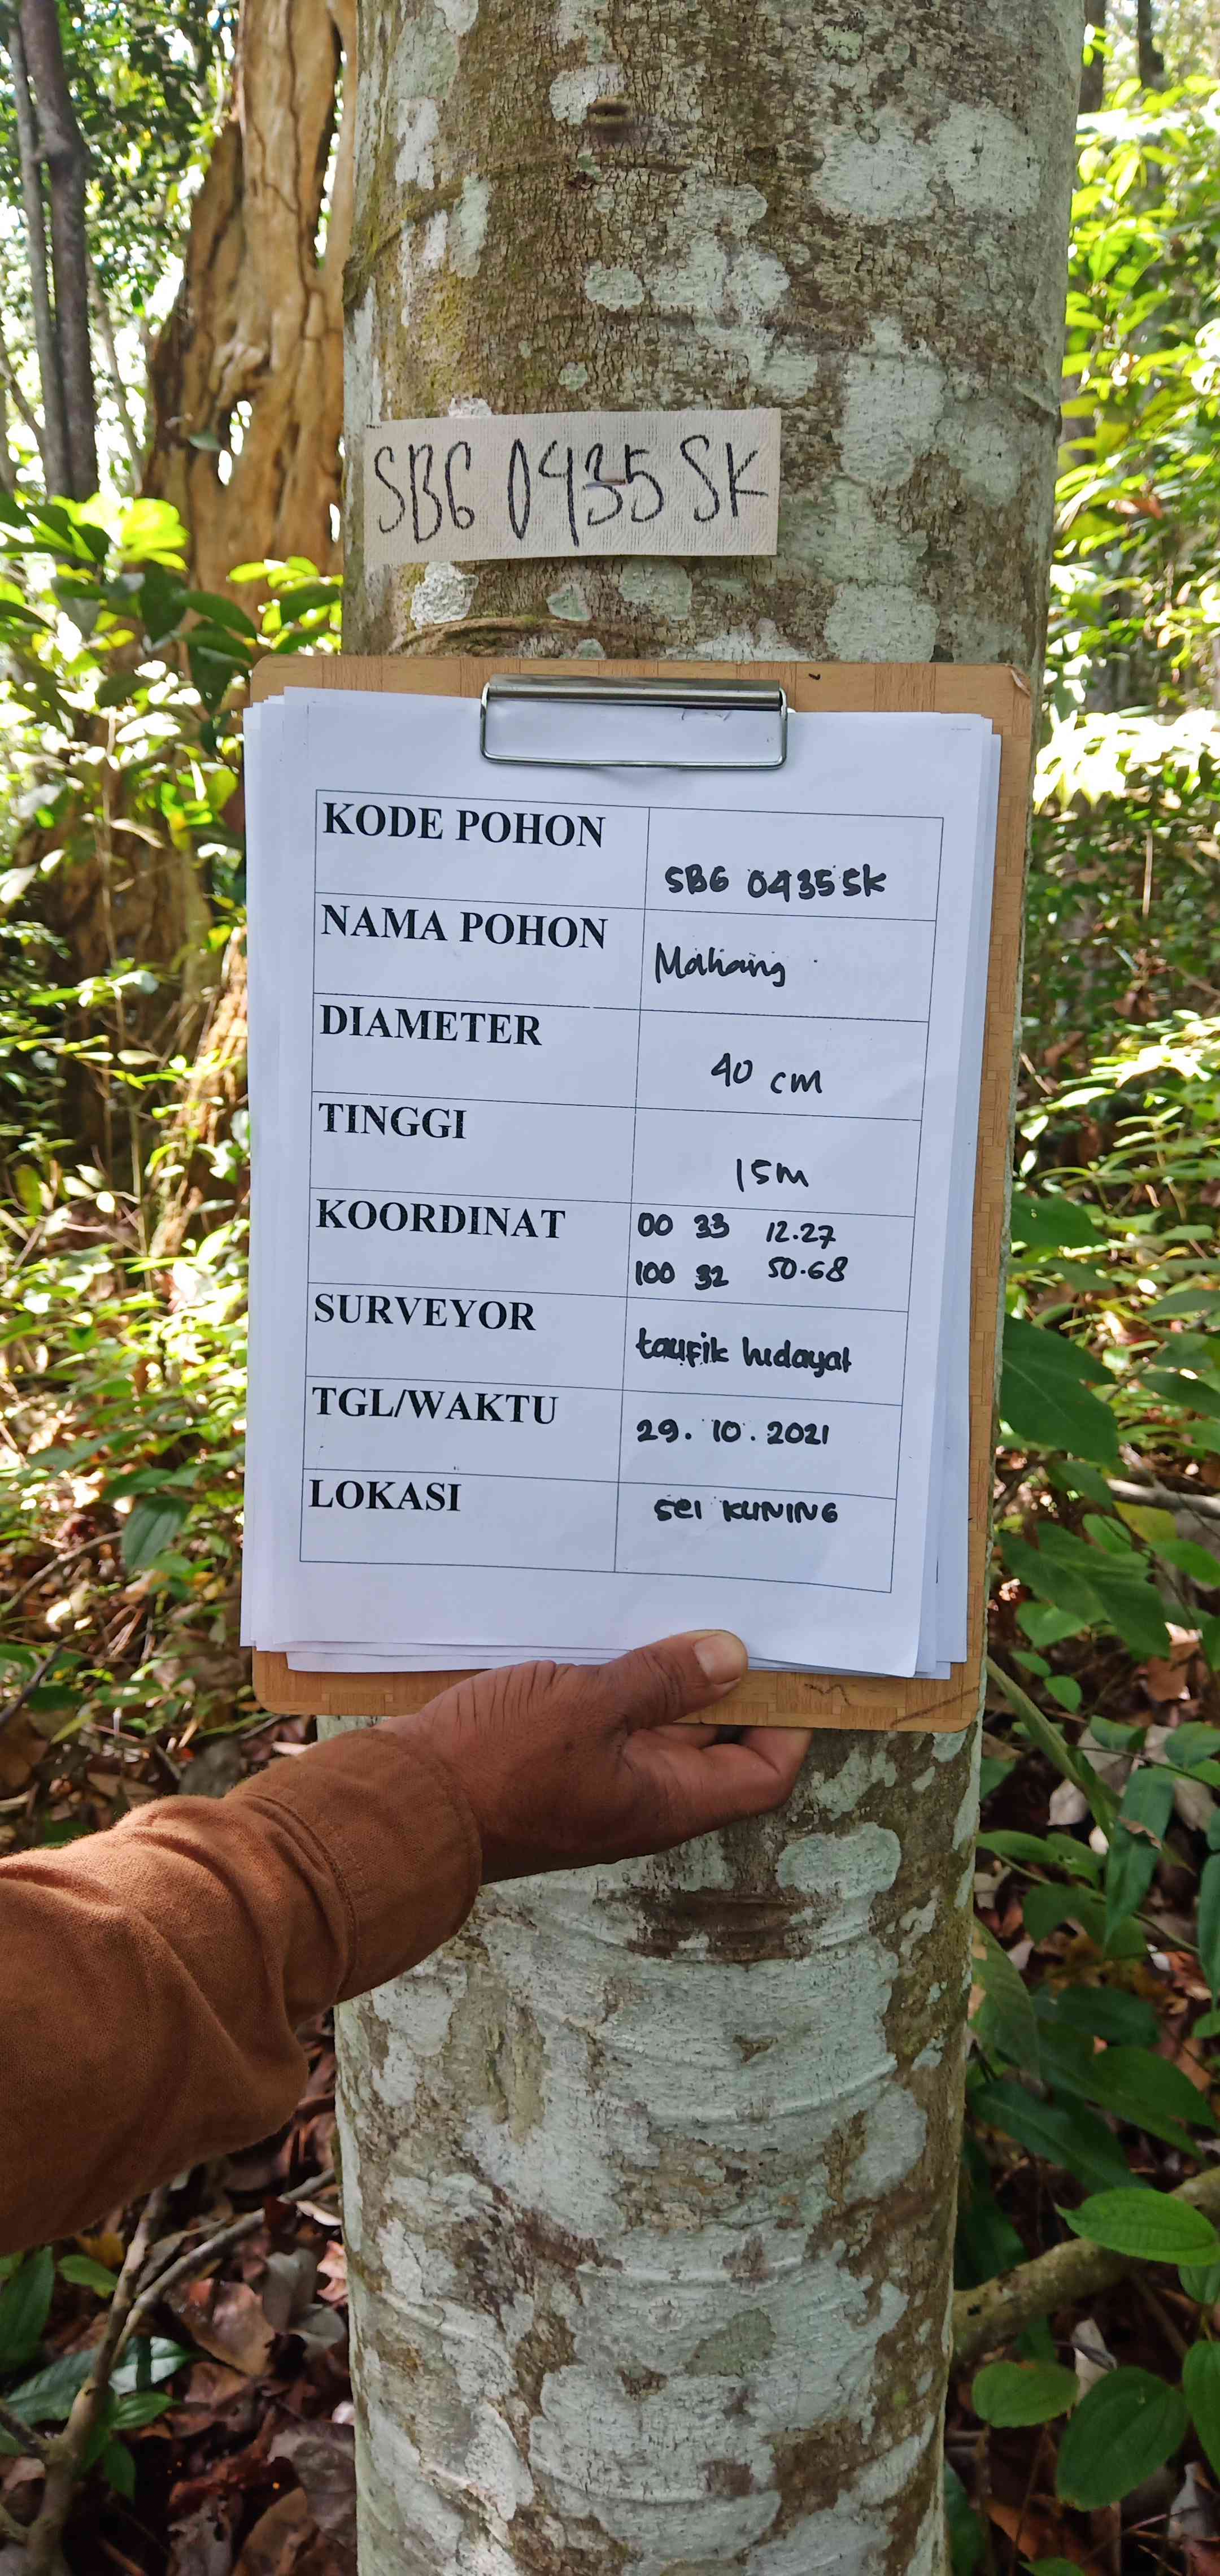 SBG 0435 SK
KODE POHON
SBG 0435 SK
NAMA POHON
Mahang
DIAMETER
40 cm
TINGGI
15m
KOORDINAT
00 33 12.27
100 32 50.68
SURVEYOR
taufik hidayat
TGL/WAKTU
29. 10. 2021
LOKASI
sei KUNING